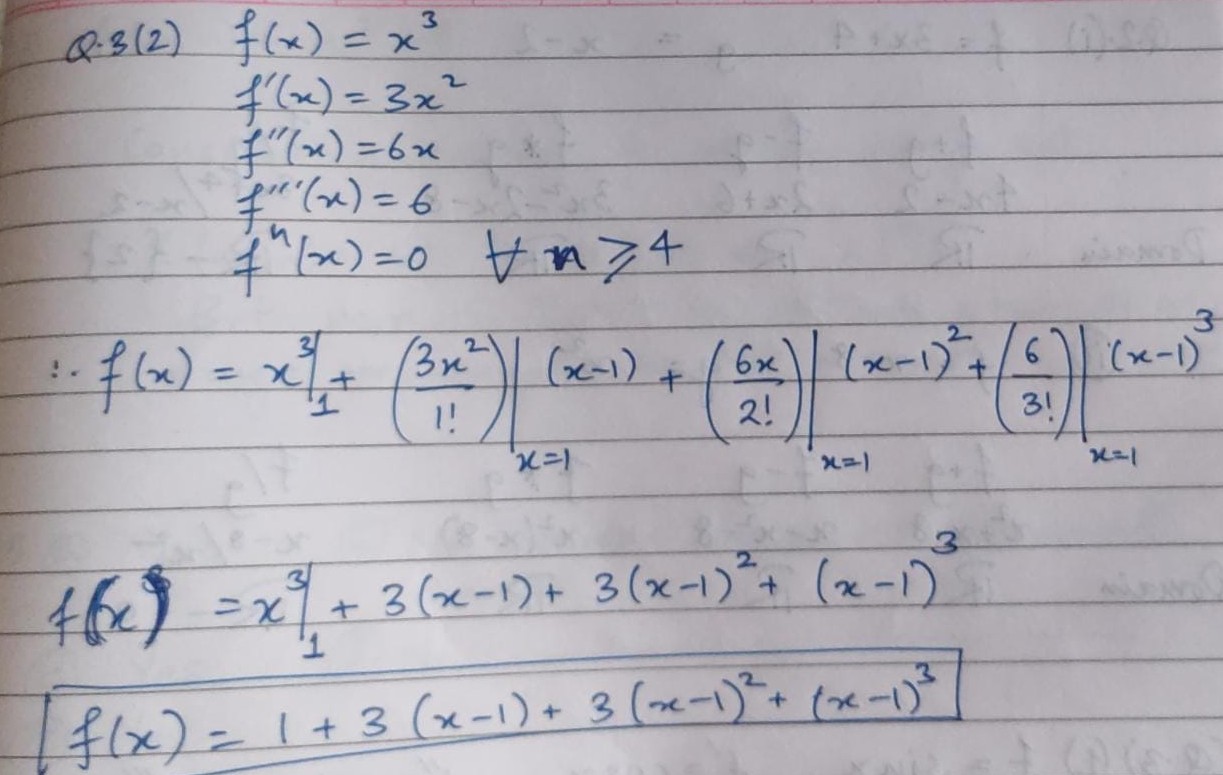 Q.3(2) f(x) = x³
f'(x) = 3x²
f''(x) = 6x
f'''(x) = 6
fⁿ(x) = 0 ∀ n ⩾ 4
∴ f(x) = x³|₁ + (3x²/1!)|ₓ₌₁ (x-1) + (6x/2!)|ₓ₌₁ (x-1)² + (6/3!)|ₓ₌₁ (x-1)³
f(x) = x³|₁ + 3(x-1) + 3(x-1)² + (x-1)³
f(x) = 1 + 3(x-1) + 3(x-1)² + (x-1)³